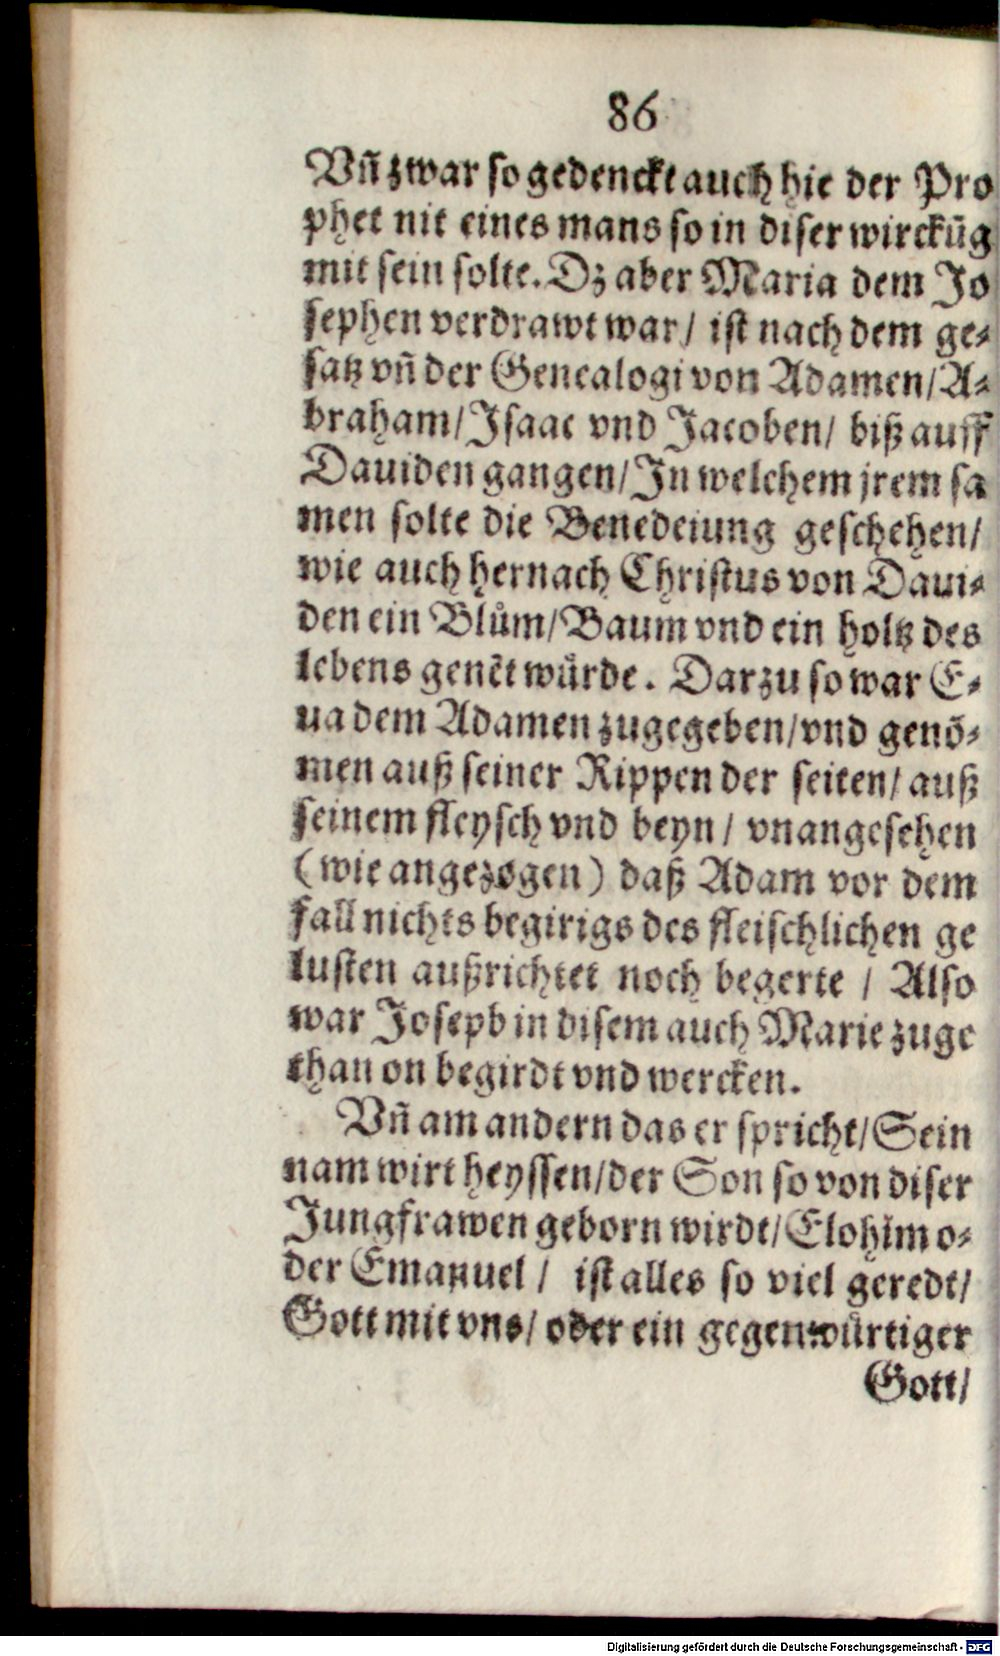 86
Vñ zwar so gedenckt auch hie der Pro
phet nit eines mans so in diser wirckũg
mit sein solte. Dz aber Maria dem Jo
sephen verdrawt war/ ist nach dem ge-
satz vñ der Genealogi von Adamen/A-
braham/Isaac vnd Jacoben/ biß auff
Dauiden gangen/In welchem jrem sa
men solte die Benedeiung geschehen/
wie auch hernach Christus von Daui-
den ein Blům/Baum vnd ein holtz des
lebens genẽt wuͤrde. Darzu so war E-
ua dem Adamen zugegeben/vnd genõ-
men auß seiner Rippen der seiten/ auß
seinem fleysch vnd beyn/ vnangesehen
(wie angezogen) daß Adam vor dem
fall nichts begirigs des fleischlichen ge
lusten außrichtet noch begerte / Also
war Joseph in disem auch Marie zuge
than on begirdt vnd wercken.
Vñ am andern das er spricht/Sein
nam wirt heyssen/der Son so von diser
Jungfrawen geborn wirdt/Elohim o-
der Emanuel / ist alles so viel geredt/
Gott mit vns/ oder ein gegenwuͤrtiger
Gott/
Digitalisierung gefördert durch die Deutsche Forschungsgemeinschaft - DFG